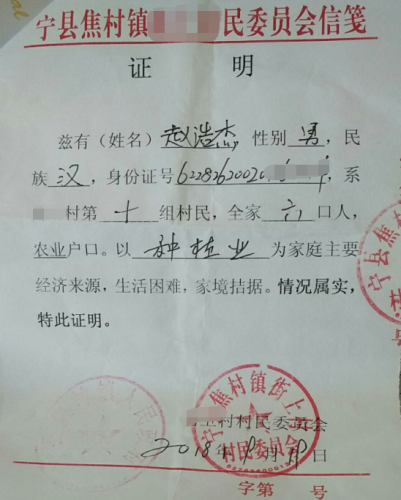 宁县焦村镇 民委员会信笺
证 明
兹有（姓名）赵浩杰 性别 男，民
族 汉，身份证号6228262002，系
村第 十 组村民，全家 六 口人，
农业户口。以 种植业 为家庭主要
经济来源，生活困难，家境拮据。情况属实，
特此证明。
宁县焦
宁县焦村镇街上
村民委员会
村村民委员会
2018年 月 日
字第 号